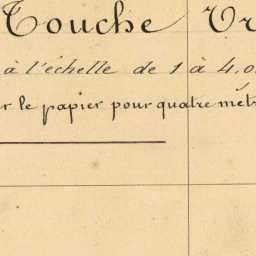 Touche Tr
à l'échelle de 1 à 4.0
r le papier pour quatre mét